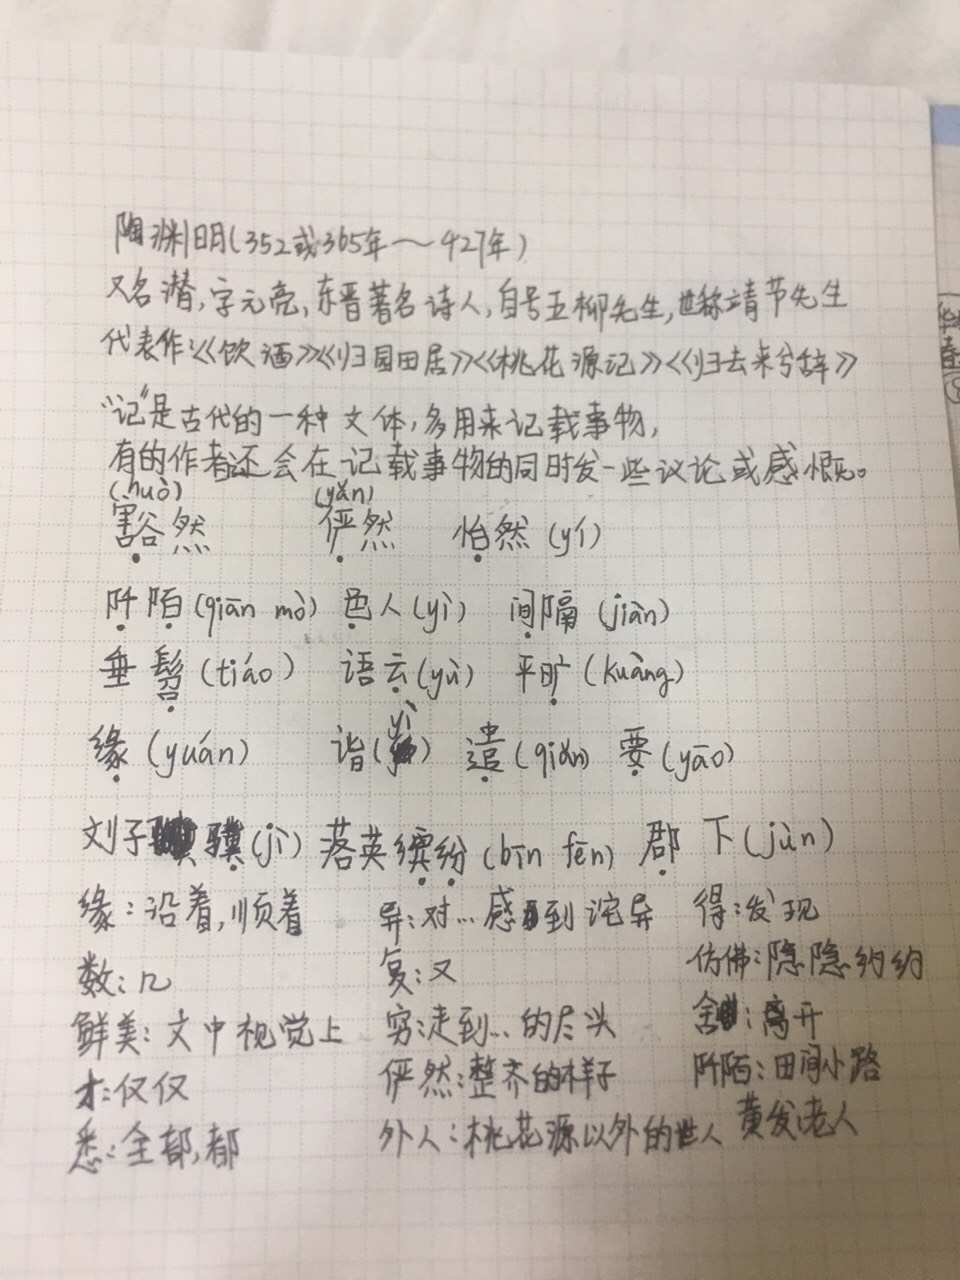 陶渊明(352或365年～427年)
又名潜,字元亮,东晋著名诗人,自号五柳先生,世称靖节先生
代表作:《饮酒》《归园田居》《桃花源记》《归去来兮辞》
"记"是古代的一种文体,多用来记载事物,
有的作者还会在记载事物的同时发一些议论或感慨。
(huò) (yǎn)
豁然 俨然 怡然(yí)
阡陌(qiān mò) 邑人(yì) 间隔(jiàn)
垂髫(tiáo) 语云(yù) 平旷(kuàng)
缘(yuán) 诣(yì) 遣(qiǎn) 要(yāo)
刘子骥(jì) 落英缤纷(bīn fēn) 郡下(jùn)
缘:沿着,顺着 异:对…感到诧异 得:发现
数:几 复:又 仿佛:隐隐约约
鲜美:文中视觉上 穷:走到…的尽头 舍:离开
才:仅仅 俨然:整齐的样子 阡陌:田间小路
悉:全部,都 外人:桃花源以外的世人 黄发老人